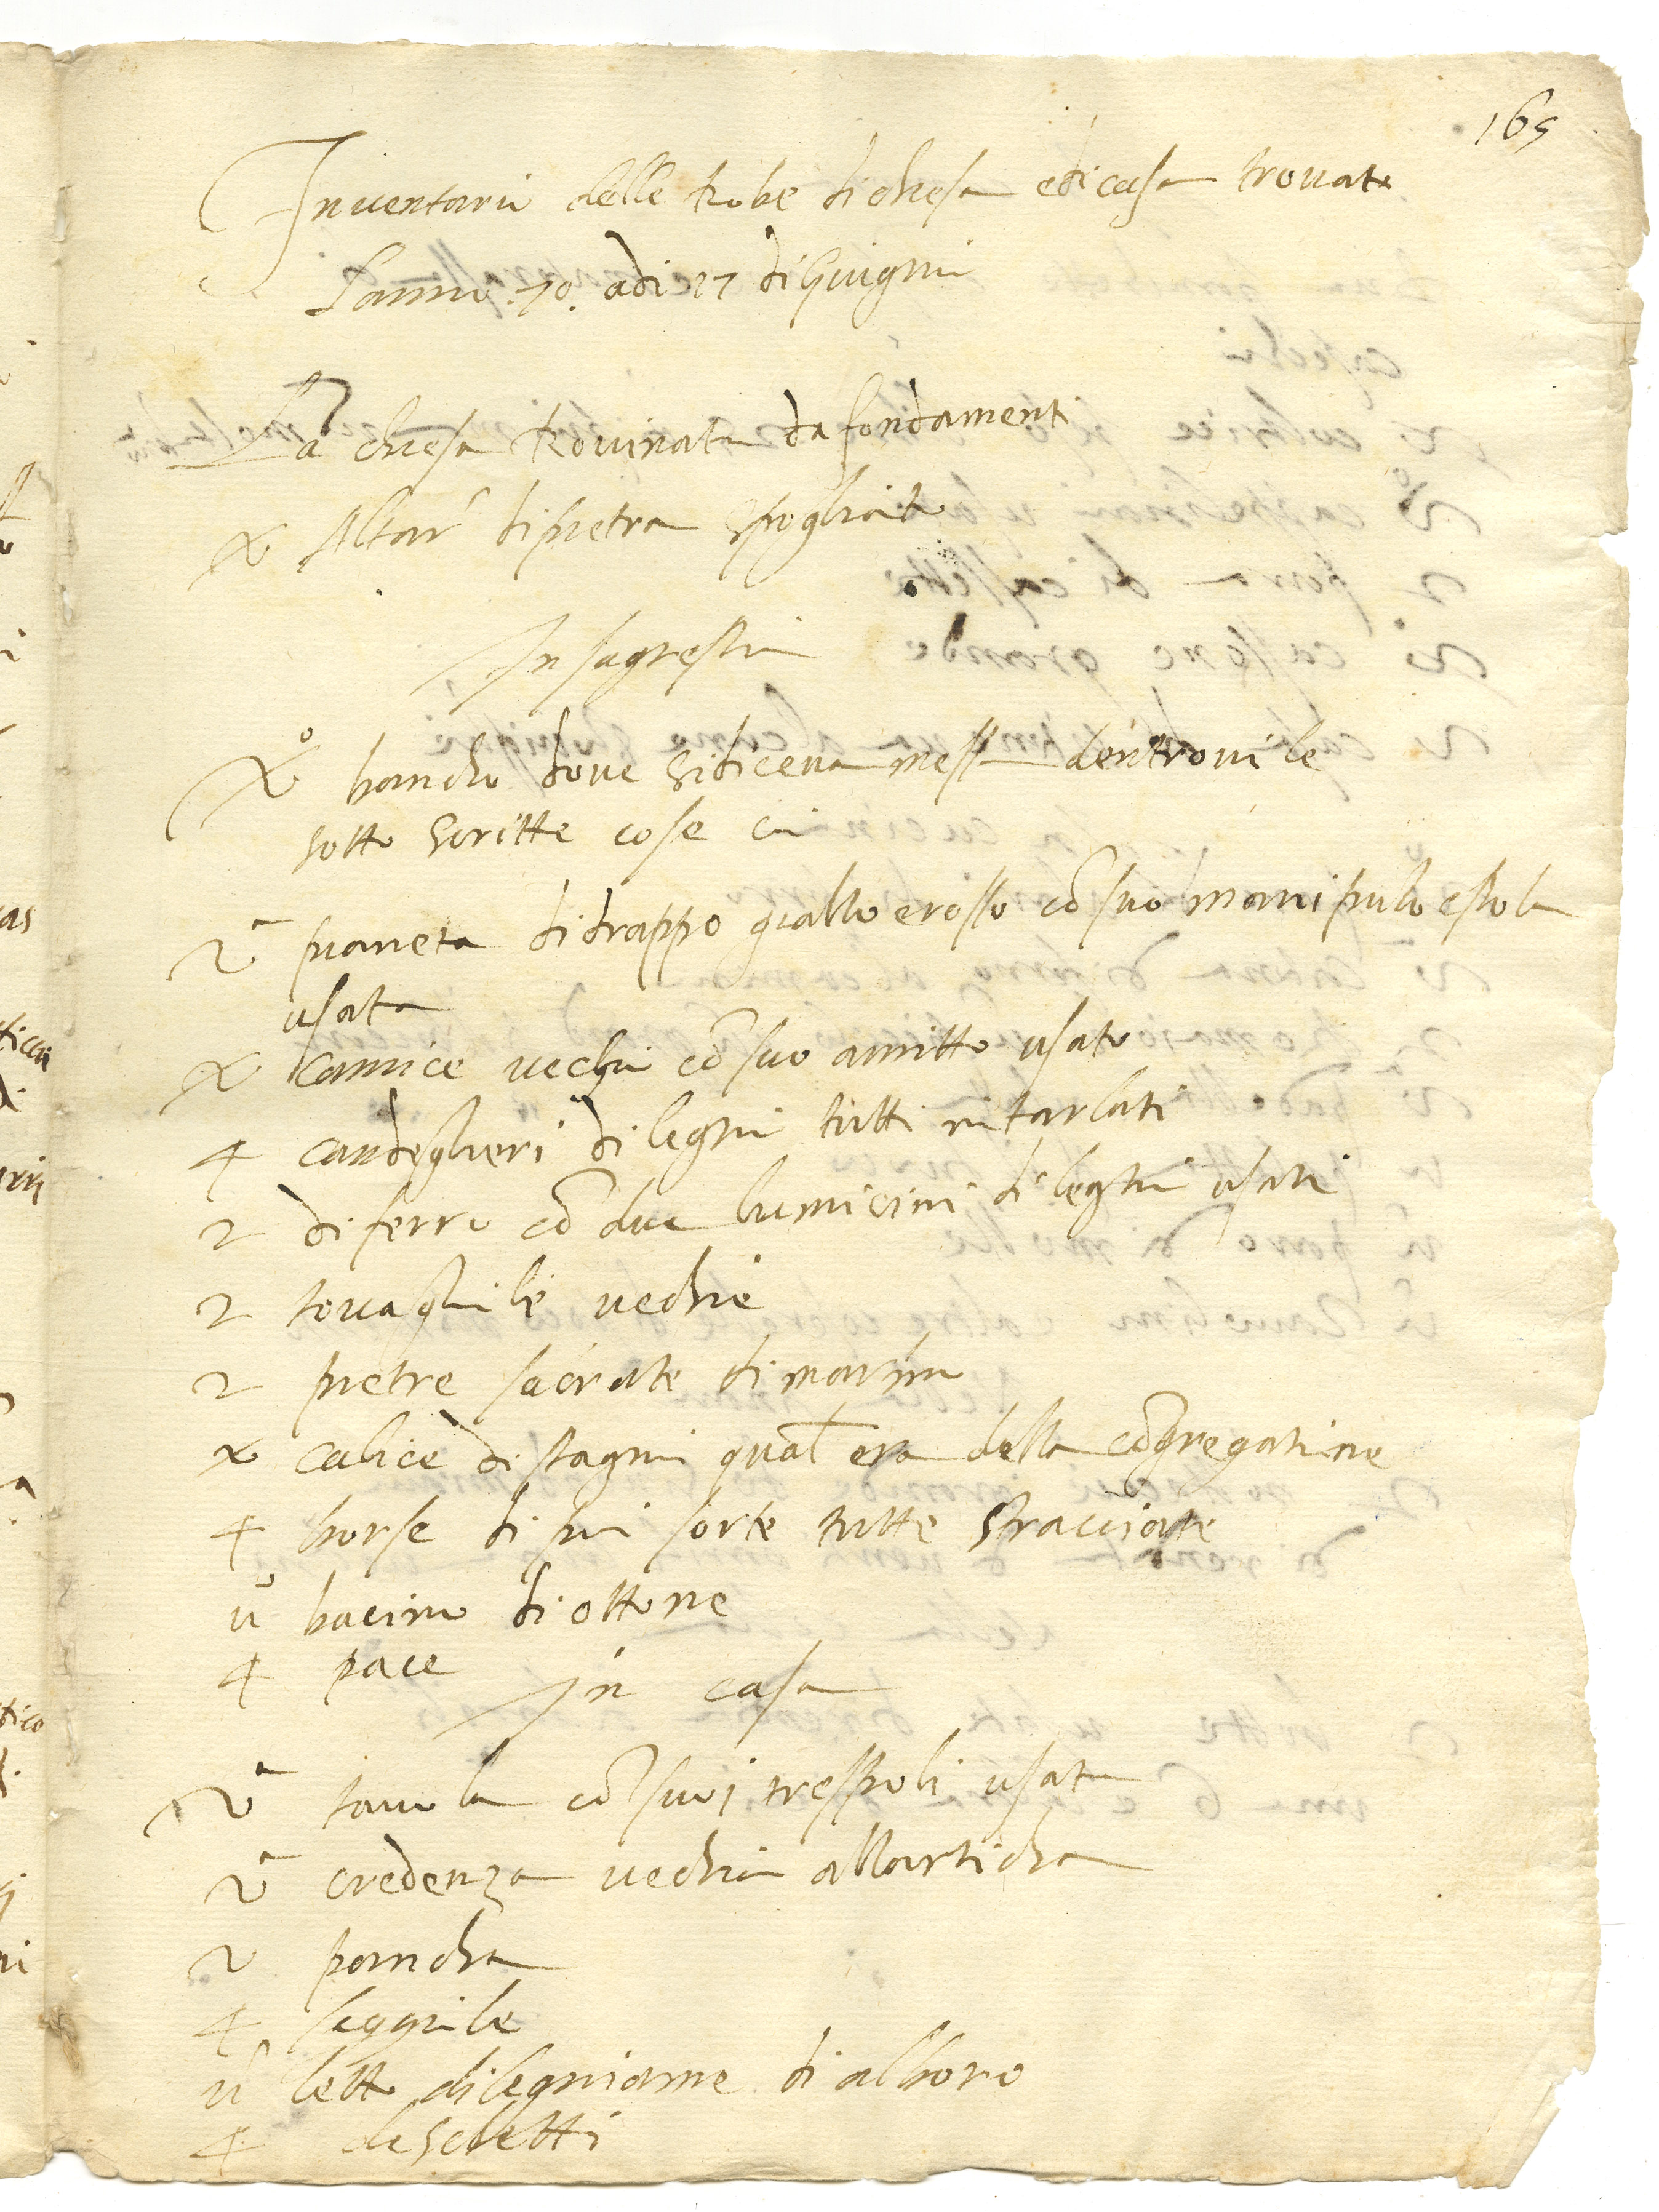 165
Inventario delle robe di chiesa e di casa trovate
l'anno .70. adi 27 di Giugnio
La chiesa Rovinata da fondament
Altar di pietra spogliato
In sagrestia
bancho dove si diceva messa dentrovi le
sotto scritte cose cio
pianeta di drappo giallo e rosso cō suo manipulo e stola
usata
camice vechio cō suo amitto usato
4 candeglieri di legnio tutti intarlati
2 di ferro cō due lumicini di legnio usati
2 tovagliole vechie
2 pietre sacrate di marmo
calice di stagnio qual era della cōgregatione
4 borse di piu sorte tutte stracciate
uº bacino di ottone
4 pace
In casa
tavola cō suoi trespoli usata
credenza vechia all'anticha
pancha
4 seggiole
uº letto di legniame di alboro
4 deschetti